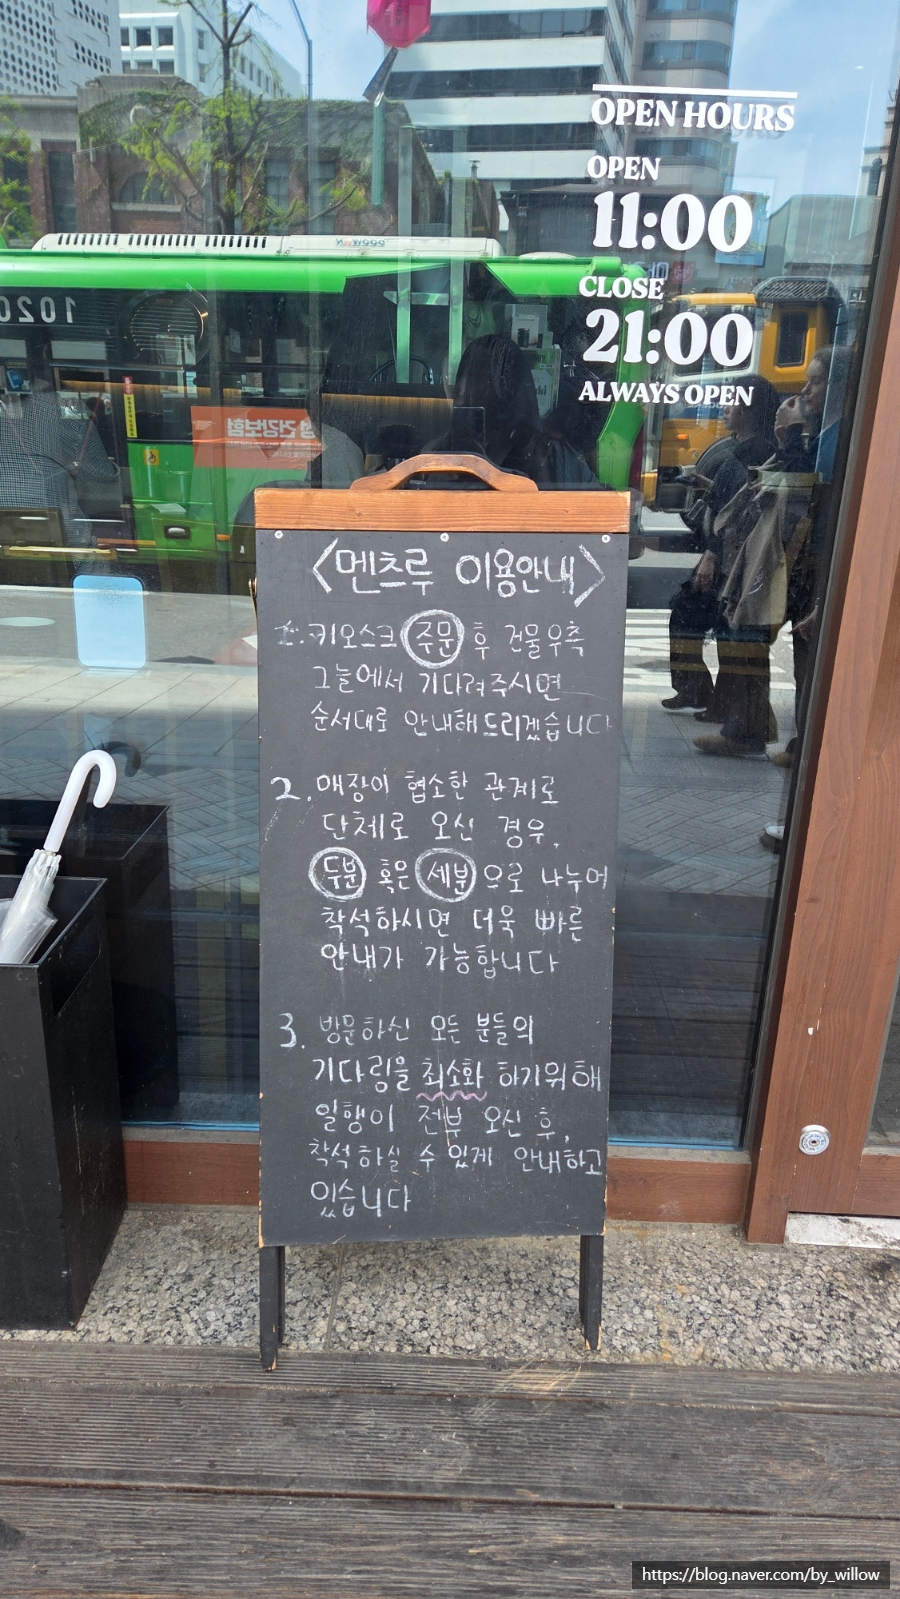 OPEN HOURS
OPEN
11:00
CLOSE
21:00
ALWAYS OPEN
1020
건강보험
<멘츠루 이용안내>
1. 키오스크 주문 후 건물우측
그늘에서 기다려주시면
순서대로 안내해드리겠습니다
2. 매장이 협소한 관계로
단체로 오신 경우,
두분 혹은 세분으로 나누어
착석하시면 더욱 빠른
안내가 가능합니다
3. 방문하신 모든 분들의
기다림을 최소화 하기위해
일행이 전부 오신 후,
착석하실 수 있게 안내하고
있습니다
https://blog.naver.com/by_willow